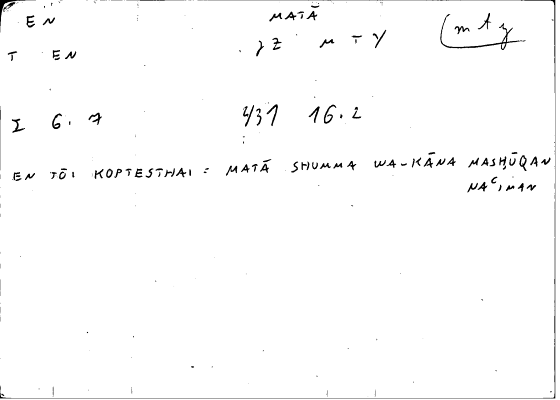 EN MATĀ
T EN γZ M T Y (mty
I 6.7 431 16.2
EN TŌI KOPTESTHAI = MATĀ SHUMMA WA-KĀNA MASḤŪQAN
NAᶜIMAN